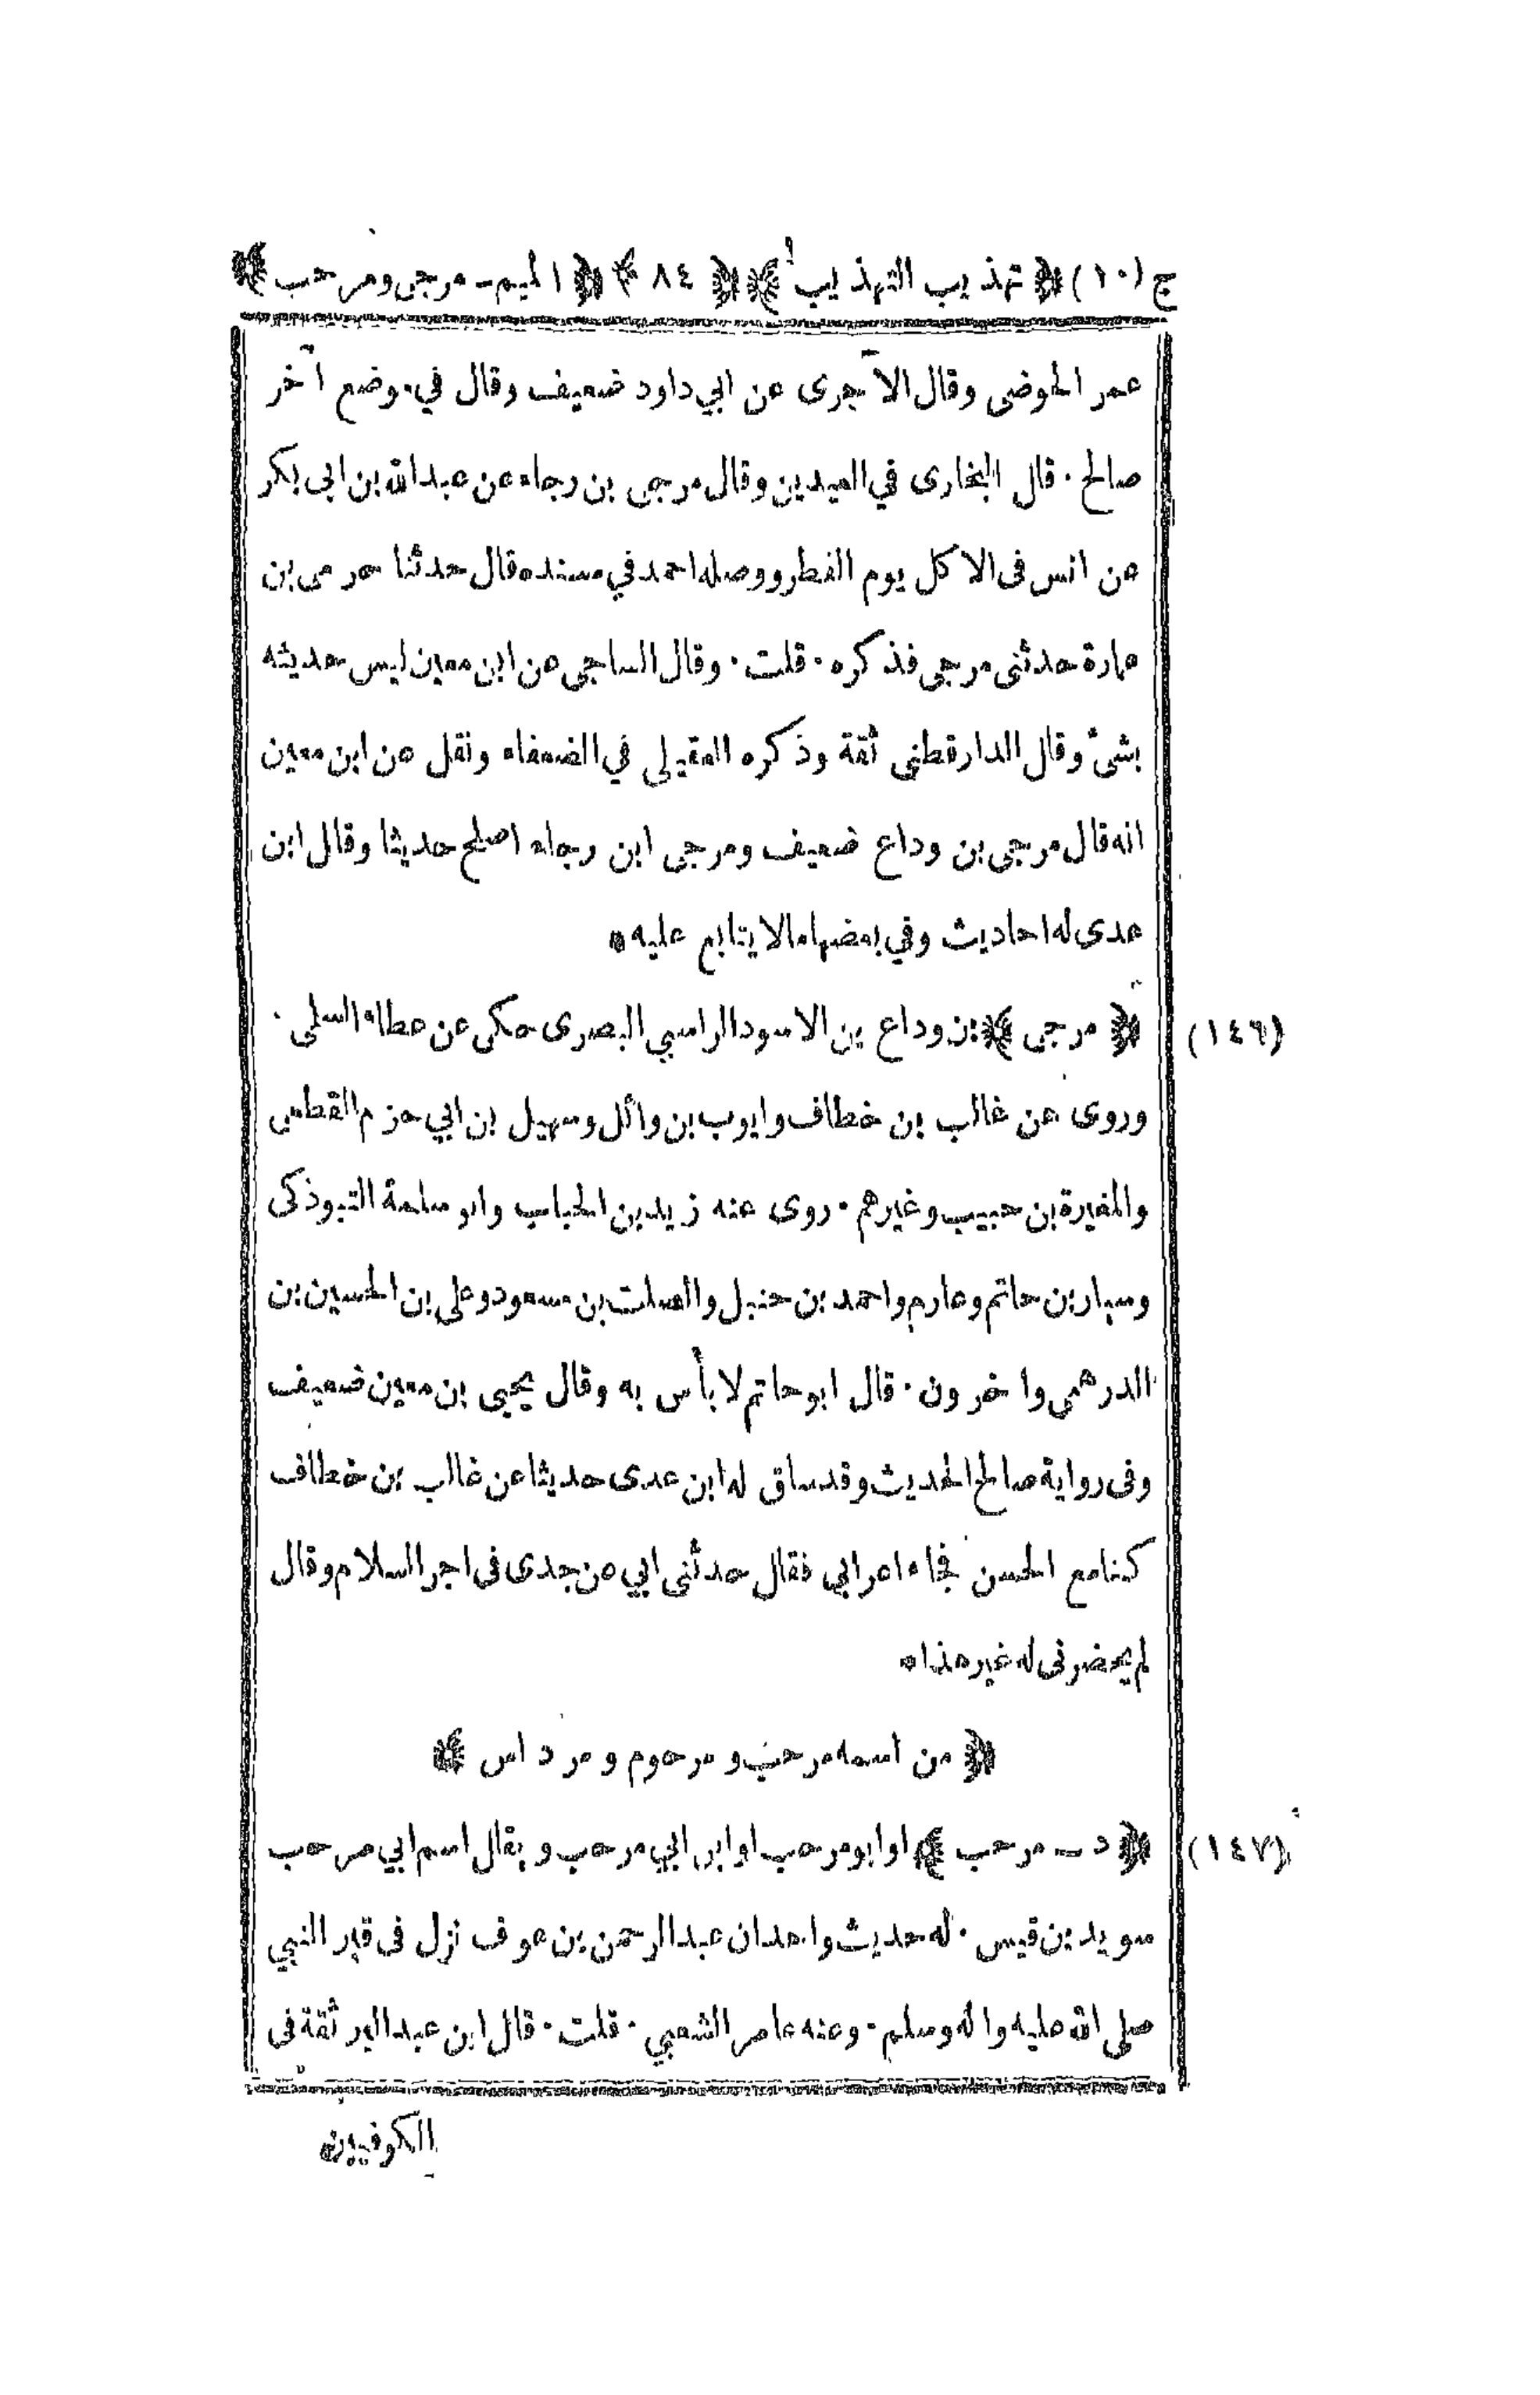 ج (١٠) ﴿ تهذيب التهذيب ﴾ ﴿ ٨٤ ﴾ ﴿ الميم - مرجى ومرحب ﴾
عمر الحوضى وقال الآجرى عن ابي داود ضعيف وقال في موضع آخر
صالح · قال البخارى في العيدين وقال مرجى بن رجاء عن عبدالله بن ابى بكر
عن انس فى الاكل يوم الفطر ووصله احمد في مسنده قال حدثنا حرمى بن
عمارة حدثنى مرجى فذكره · قلت · وقال الساجى عن ابن معين ليس حديثه
بشئ وقال الدارقطنى ثقة وذكره العقيلى في الضعفاء ونقل عن ابن معين
انه قال مرجى بن وداع ضعيف ومرجى ابن رجاء اصلح حديثا وقال ابن
عدى له احاديث وفي بعضها مالا يتابع عليه *
(١٤٦) ﴿ مرجى ﴾ بن وداع بن الاسود الراسبي البصرى حكى عن عطاء السلمى ·
وروى عن غالب بن خطاف وايوب بن وائل وسهيل بن ابي حزم القطعى
والمغيرة بن حبيب وغيرهم · روى عنه زيد بن الحباب وابو سلمة التبوذكى
وسيار بن حاتم وعارم واحمد بن حنبل والصلت بن مسعود وعلى بن الحسين بن
الدرهمى واخرون · قال ابو حاتم لا بأس به وقال يحيى بن معين ضعيف
وفى رواية صالح الحديث وقد ساق له ابن عدى حديثا عن غالب بن خطاف
كنا مع الحسن فجاء اعرابي فقال حدثنى ابي عن جدى فى اجر السلام وقال
لم يحضرنى له غير هذا *
﴿ من اسمه مرحب ومرحوم ومرداس ﴾
(١٤٧) ﴿ د - مرحب ﴾ او ابو مرحب او ابن ابي مرحب ويقال اسم ابي مرحب
سويد بن قيس · له حديث واحد ان عبدالرحمن بن عوف نزل فى قبر النبي
صلى الله عليه واله وسلم · وعنه عامر الشعبي · قلت · قال ابن عبدالبر ثقة فى
الكوفيين